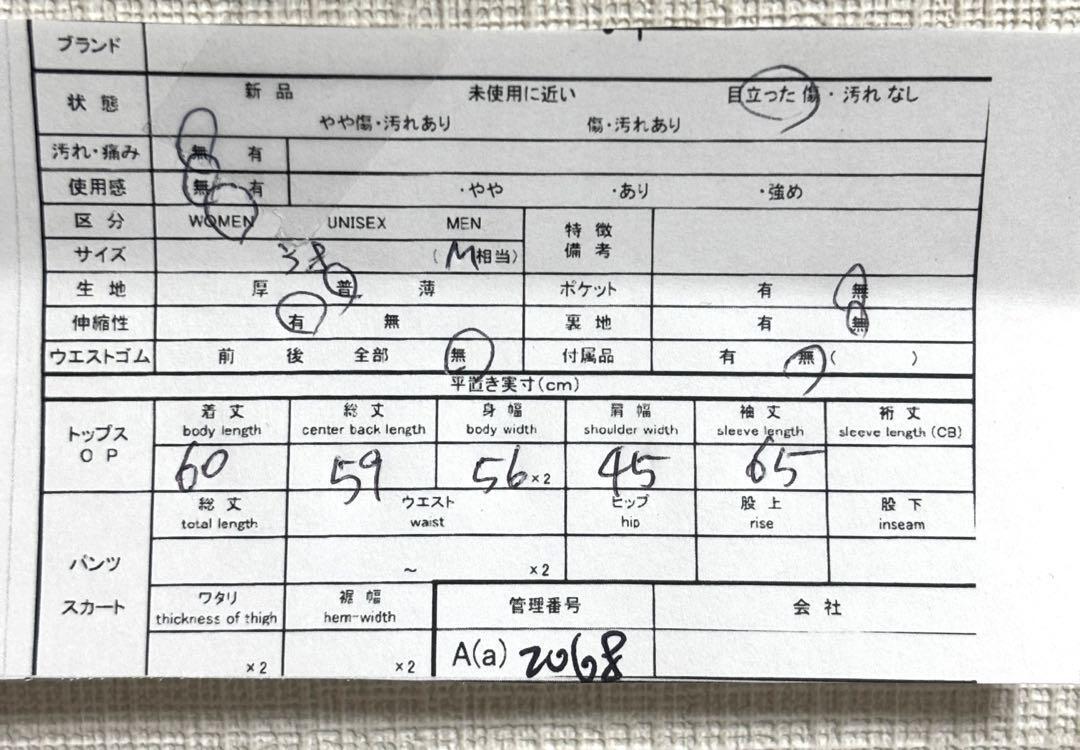 ブランド
状態 新品 未使用に近い 目立った傷・汚れなし
やや傷・汚れあり 傷・汚れあり
汚れ・痛み 無 有
使用感 無 有 ・やや ・あり ・強め
区分 WOMEN UNISEX MEN 特徴備考
サイズ 38 (M相当)
生地 厚 普 薄 ポケット 有 無
伸縮性 有 無 裏地 有 無
ウエストゴム 前 後 全部 無 付属品 有 無( )
平置き実寸(cm)
トップス OP 着丈 総丈 身幅 肩幅 袖丈 裄丈
body length center back length body width shoulder width sleeve length sleeve length (CB)
60 59 56×2 45 65
パンツ スカート 総丈 ウエスト ヒップ 股上 股下
total length waist hip rise inseam
~ ×2
ワタリ 裾幅 管理番号 会社
thickness of thigh hem-width
×2 ×2 A(a) 2068